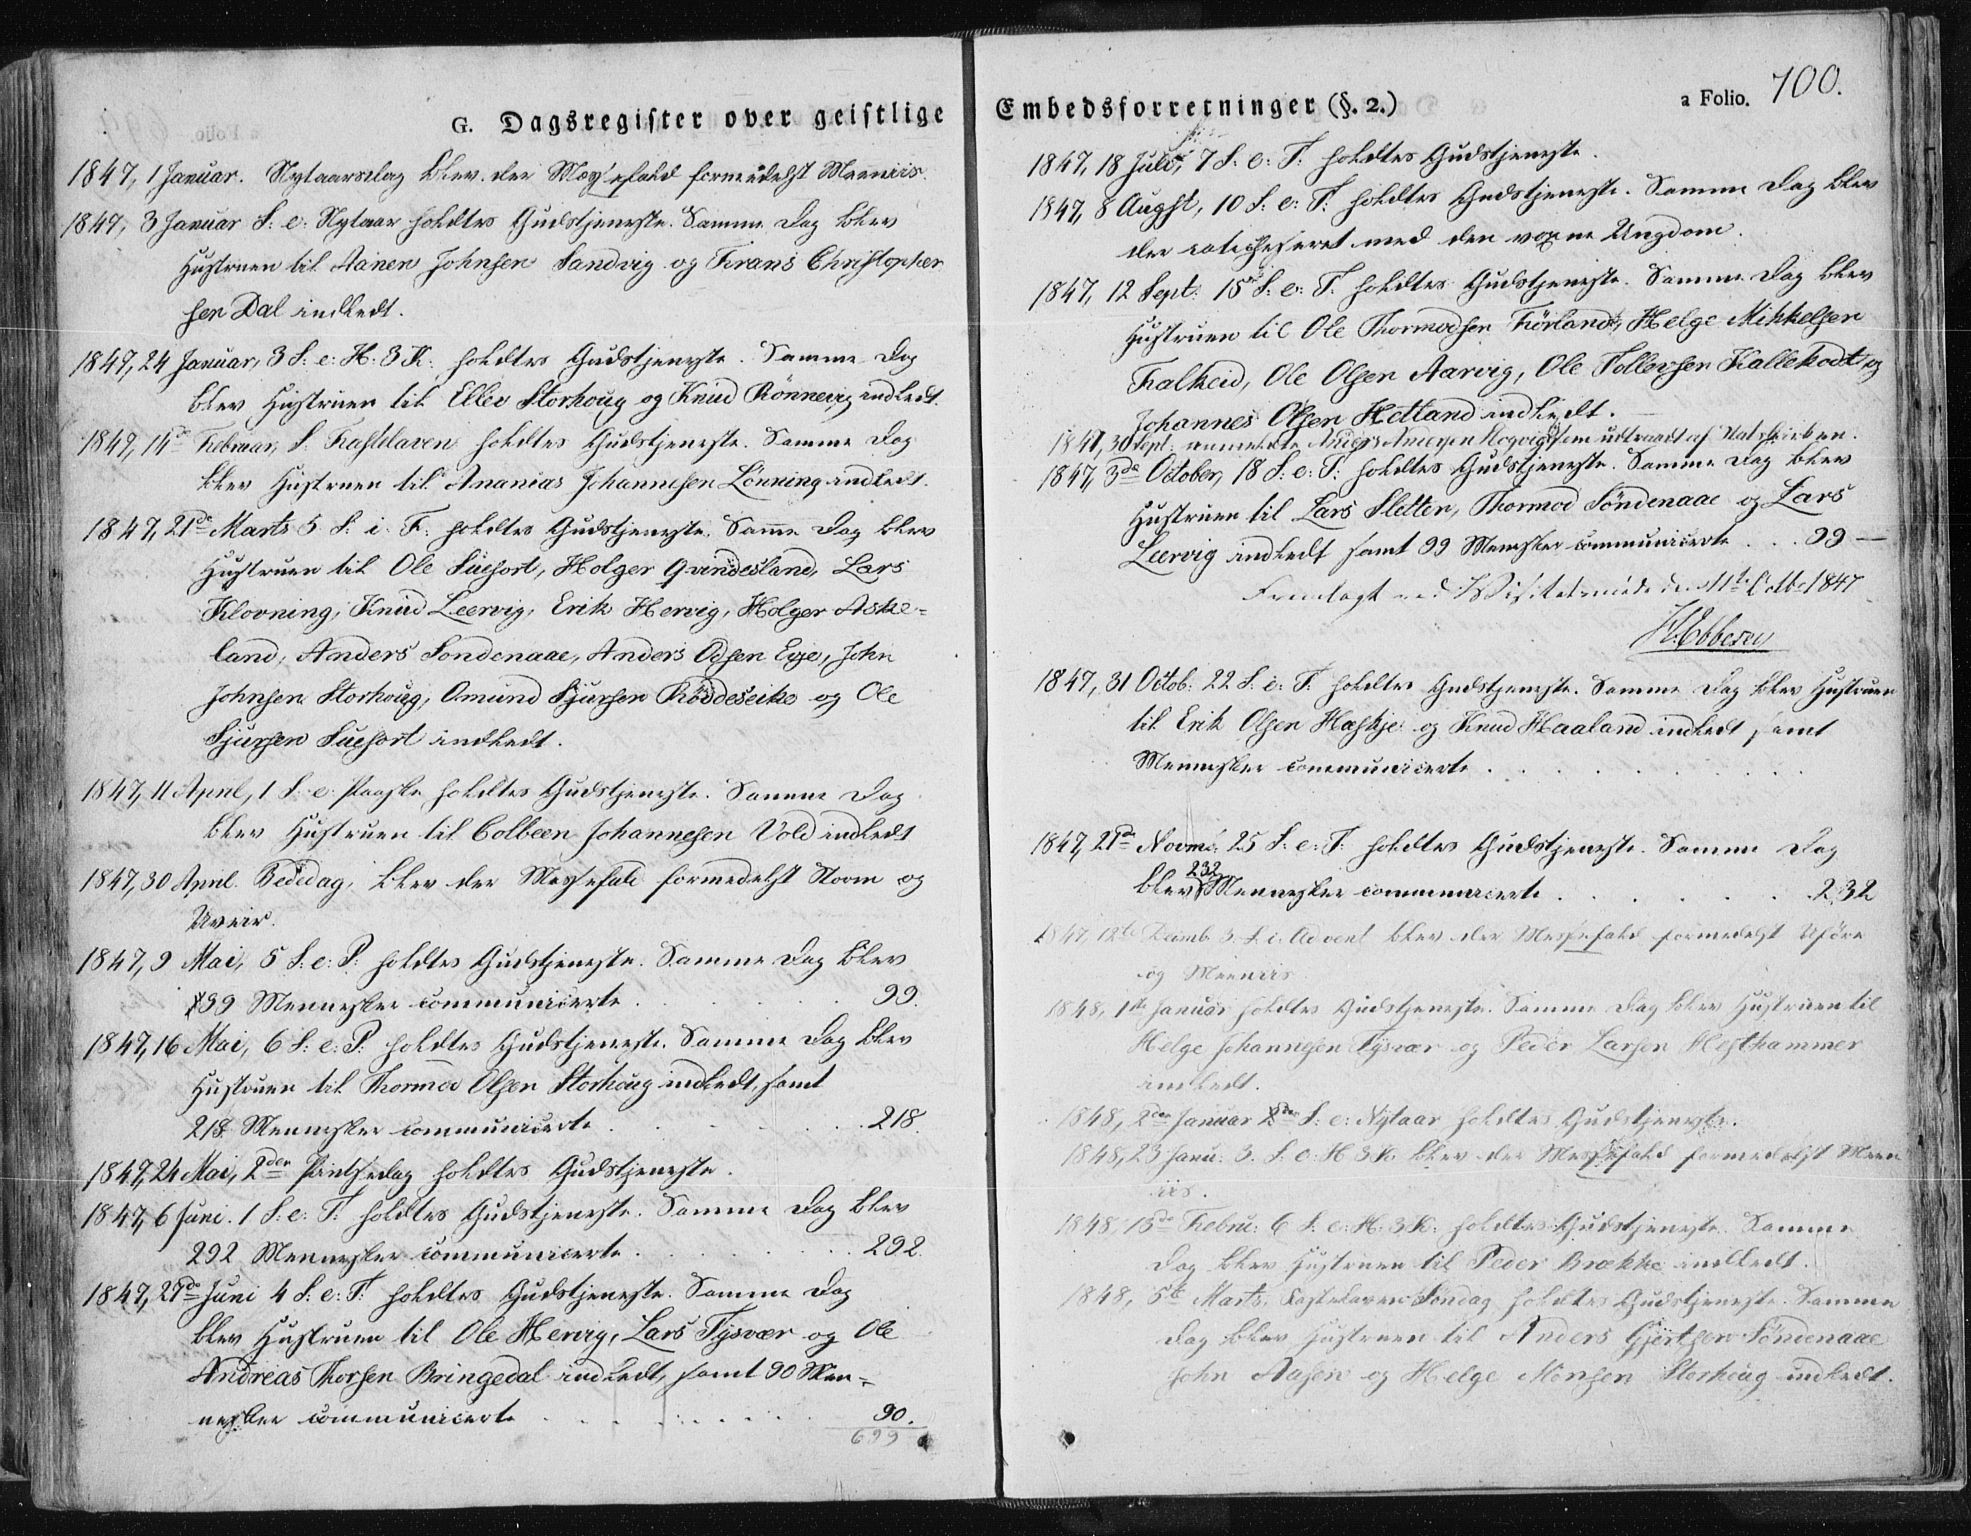 G. Dagsregister over geistlige
1847, 1 Januar. Nytaarsdag blev der Messefald formedelst Meeniis.
1847, 3 Januar S. e. Nytaar holdtes Gudstjeneste. Samme Dag blev
Hustruen til Aanen Johnsen Sandvig og Frans Christopher
sen Dal indledt.
1847, 24 Januar, 3 S. e. H. 3 K. holdtes Gudstjeneste. Samme Dag
blev Hustruen til Ellev Storhoug og Knud Rönnevig indledt.
1847, 14de Februar, S. Fastelaven holdtes Gudstjeneste. Samme Dag
blev Hustruen til Ananias Johannesen Lönning indledt.
1847, 21de Marts 5 S. i F. holdtes Gudstjeneste. Samme Dag blev
Hustruen til Ole Suefort, Holger Qvindesland, Lars
Klovning, Knud Leervig, Erik Hervig, Holger Aske-
land, Anders Sondenaae, Anders Odsen Ege, John
Johnsen Storhoug, Omund Sjursen Rösdeseike og Ole
Sjursen Suefort indledt.
1847, 11 April, 1 S. e. Paaske holdtes Gudstjeneste. Samme Dag
blev Hustruen til Colbeen Johannesen Vold indledt
1847, 30 April. Bededag, blev der Messefald formedelst Storm og
Uveir.
1847, 9 Mai, 5 S. e. P. holdtes Gudstjeneste. Samme Dag blev
99 Mennesker communicerte . . . . 99.
1847, 16 Mai, 6 S. e. P. holdtes Gudstjeneste. Samme Dag blev
Hustruen til Thormod Olsen Storhoug indledt, samt
218 Mennesker communicerte . . . . 218.
1847, 24 Mai, 2den Pintsedag holdtes Gudstjeneste.
1847, 6 Juni. 1 S. e. T. holdtes Gudstjeneste. Samme Dag blev
292 Mennesker communicerte . . . . 292.
1847, 27de Juni 4 S. e. T. holdtes Gudstjeneste. Samme Dag
blev Hustruen til Ole Hervig, Lars Tysvær og Ole
Andreas Thorsen Bringedal indledt, samt 90 Men-
nesker communicerte . . . . 90.
699
Embedsforretninger (§. 2.)
a Folio. 700.
1847, 18 Juli, 7 S. e. T. holdtes Gudstjeneste.
1847, 8 August, 10 S. e. T. holdtes Gudstjeneste. Samme Dag blev
der catechiseret med den voxne Ungdom.
1847, 12 Sept. 15 S. e. T. holdtes Gudstjeneste. Samme Dag blev
Hustruen til Ole Thormodsen Förland, Helge Mikkelsen
Falkeid, Ole Olsen Aarvig, Ole Tollevsen Kallekodt og
Johannes Olsen Hetland indledt.
1847, 30 Sept. anmeldte Anders Andersen Hogvig sem udtraadt af Statskirken.
1847, 3de October, 18 S. e. T. holdtes Gudstjeneste. Samme Dag blev
Hustruen til Lars Sletten, Thormod Söndenaae og Lars
Leervig indledt samt 99 Mennesker communicerte . . . 99 —
Fremlagt ved Visitatsmöde den 11te Octbr 1847
Ebbesen
1847, 31 Octob. 22 S. e. T. holdtes Gudstjeneste. Samme Dag blev Hustruen
til Erik Olsen Haskje og Knud Haaland indledt samt
Mennesker communicerte . . . .
1847, 21de Novmb. 25 S. e. T. holdtes Gudstjeneste. Samme Dag
blev 232 Mennesker communicerte . . . . 232
1847, 12te Decmb. 3 S. i Advent blev der Messefald formedelst Uföre
og Meeniis
1848, 1ste Januar holdtes Gudstjeneste. Samme Dag blev Hustruen til
Helge Johannesen Tysvær og Peder Larsen Hesthammer
indledt.
1848, 2den Januar S. e. Nytaar holdtes Gudstjeneste.
1848, 23 Janu. 3. S. e. H. 3 K. blev der Messefald formedelst Meen
iis.
1848, 13de Febru. 6 S. e. H. 3 K. holdtes Gudstjeneste. Samme
Dag blev Hustruen til Peder Brække indledt.
1848, 5te Marts. Fastelavens Söndag holdtes Gudstjeneste. Samme
Dag blev Hustruen til Anders Gjertsen Söndenaae
John Aasen og Helge Monsen Storhoug indledt.